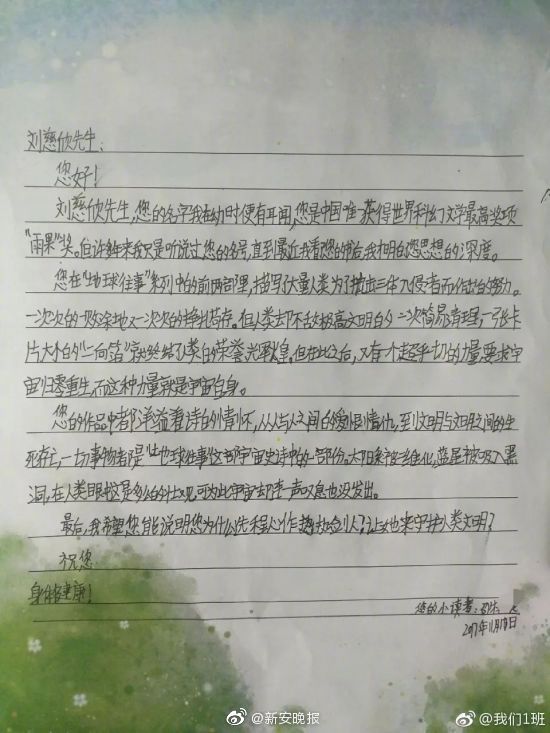 刘慈欣先生:
您好!
刘慈欣先生,您的名字我在幼时便有耳闻,您是中国唯一获得世界科幻文学最高奖项
“雨果”奖。但许多年来我只是听说过您的名号,直到最近我看您的书后,我才明白您思想的深度。
您在“地球往事”系列中的前两部里,描写了大量人类为了抗击三体入侵者而作出的努力。
一次次的一败涂地又一次次的挣扎苟存。但人类却不敌极高文明的一次简易清理,一张卡
片大小的“二向箔”就终结了人类的荣誉光辉。但在此之后,又有个超乎一切的力量要求宇
宙归零重生,而这种力量就是宇宙自身。
您的作品中都洋溢着诗的情怀,从人与人之间的爱恨情仇,到文明与文明之间的生
死存亡,一切事物都是“地球往事”这部宇宙史诗中的一部份。太阳系被二维化,蓝星被吸入黑
洞,在人类眼中这是多么的壮观,可为此宇宙却连一声叹息也没发出。
最后,我希望您能说明您为什么选程心作执剑人?让她来守护人类文明?
祝您
身体健康!
您的小读者:
2017年11月 日
新安晚报
@我们1班